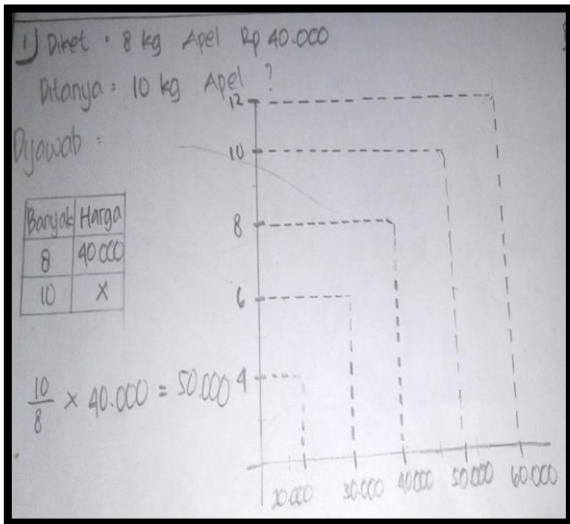 1) Diket : 8 kg Apel Rp 40.000
Ditanya : 10 kg Apel ?
Dijawab :
Banyak Harga
8 40.000
10 X
10/8 × 40.000 = 50.000
12
10
8
6
4
20.000 30.000 40.000 50.000 60.000